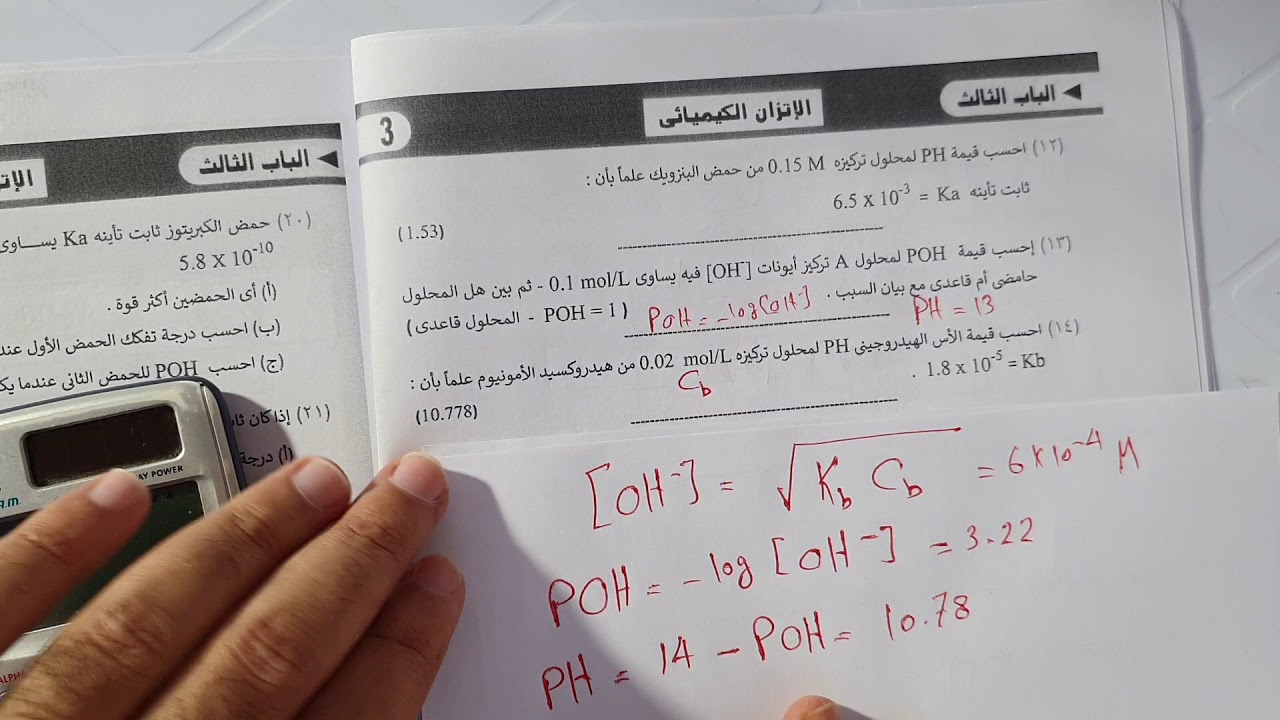 ◄ الباب الثالث
الإتزان الكيميائى
3
(١٢) احسب قيمة PH لمحلول تركيزه 0.15 M من حمض البنزويك علماً بأن :
ثابت تأينه 6.5 x 10⁻³ = Ka
(1.53)
(١٣) إحسب قيمة POH لمحلول A تركيز أيونات [OH⁻] فيه يساوى 0.1 mol/L - ثم بين هل المحلول
حامضى أم قاعدى مع بيان السبب .
(POH = 1 - المحلول قاعدى)
POH = -log[OH⁻]
PH = 13
(١٤) احسب قيمة الأس الهيدروجينى PH لمحلول تركيزه 0.02 mol/L من هيدروكسيد الأمونيوم علماً بأن :
Cb
1.8 x 10⁻⁵ = Kb .
(10.778)
[OH⁻] = √Kb Cb = 6 x 10⁻⁴ M
POH = - log [OH⁻] = 3.22
PH = 14 - POH = 10.78
◄ الباب الثالث
(٢٠) حمض الكبريتوز ثابت تأينه Ka يساوى
5.8 X 10⁻¹⁰
(أ) أى الحمضين أكثر قوة .
(ب) احسب درجة تفكك الحمض الأول
(ج) احسب POH للحمض الثانى عندما
(٢١) إذا كان
(أ) درجة
WAY POWER
ALPHA